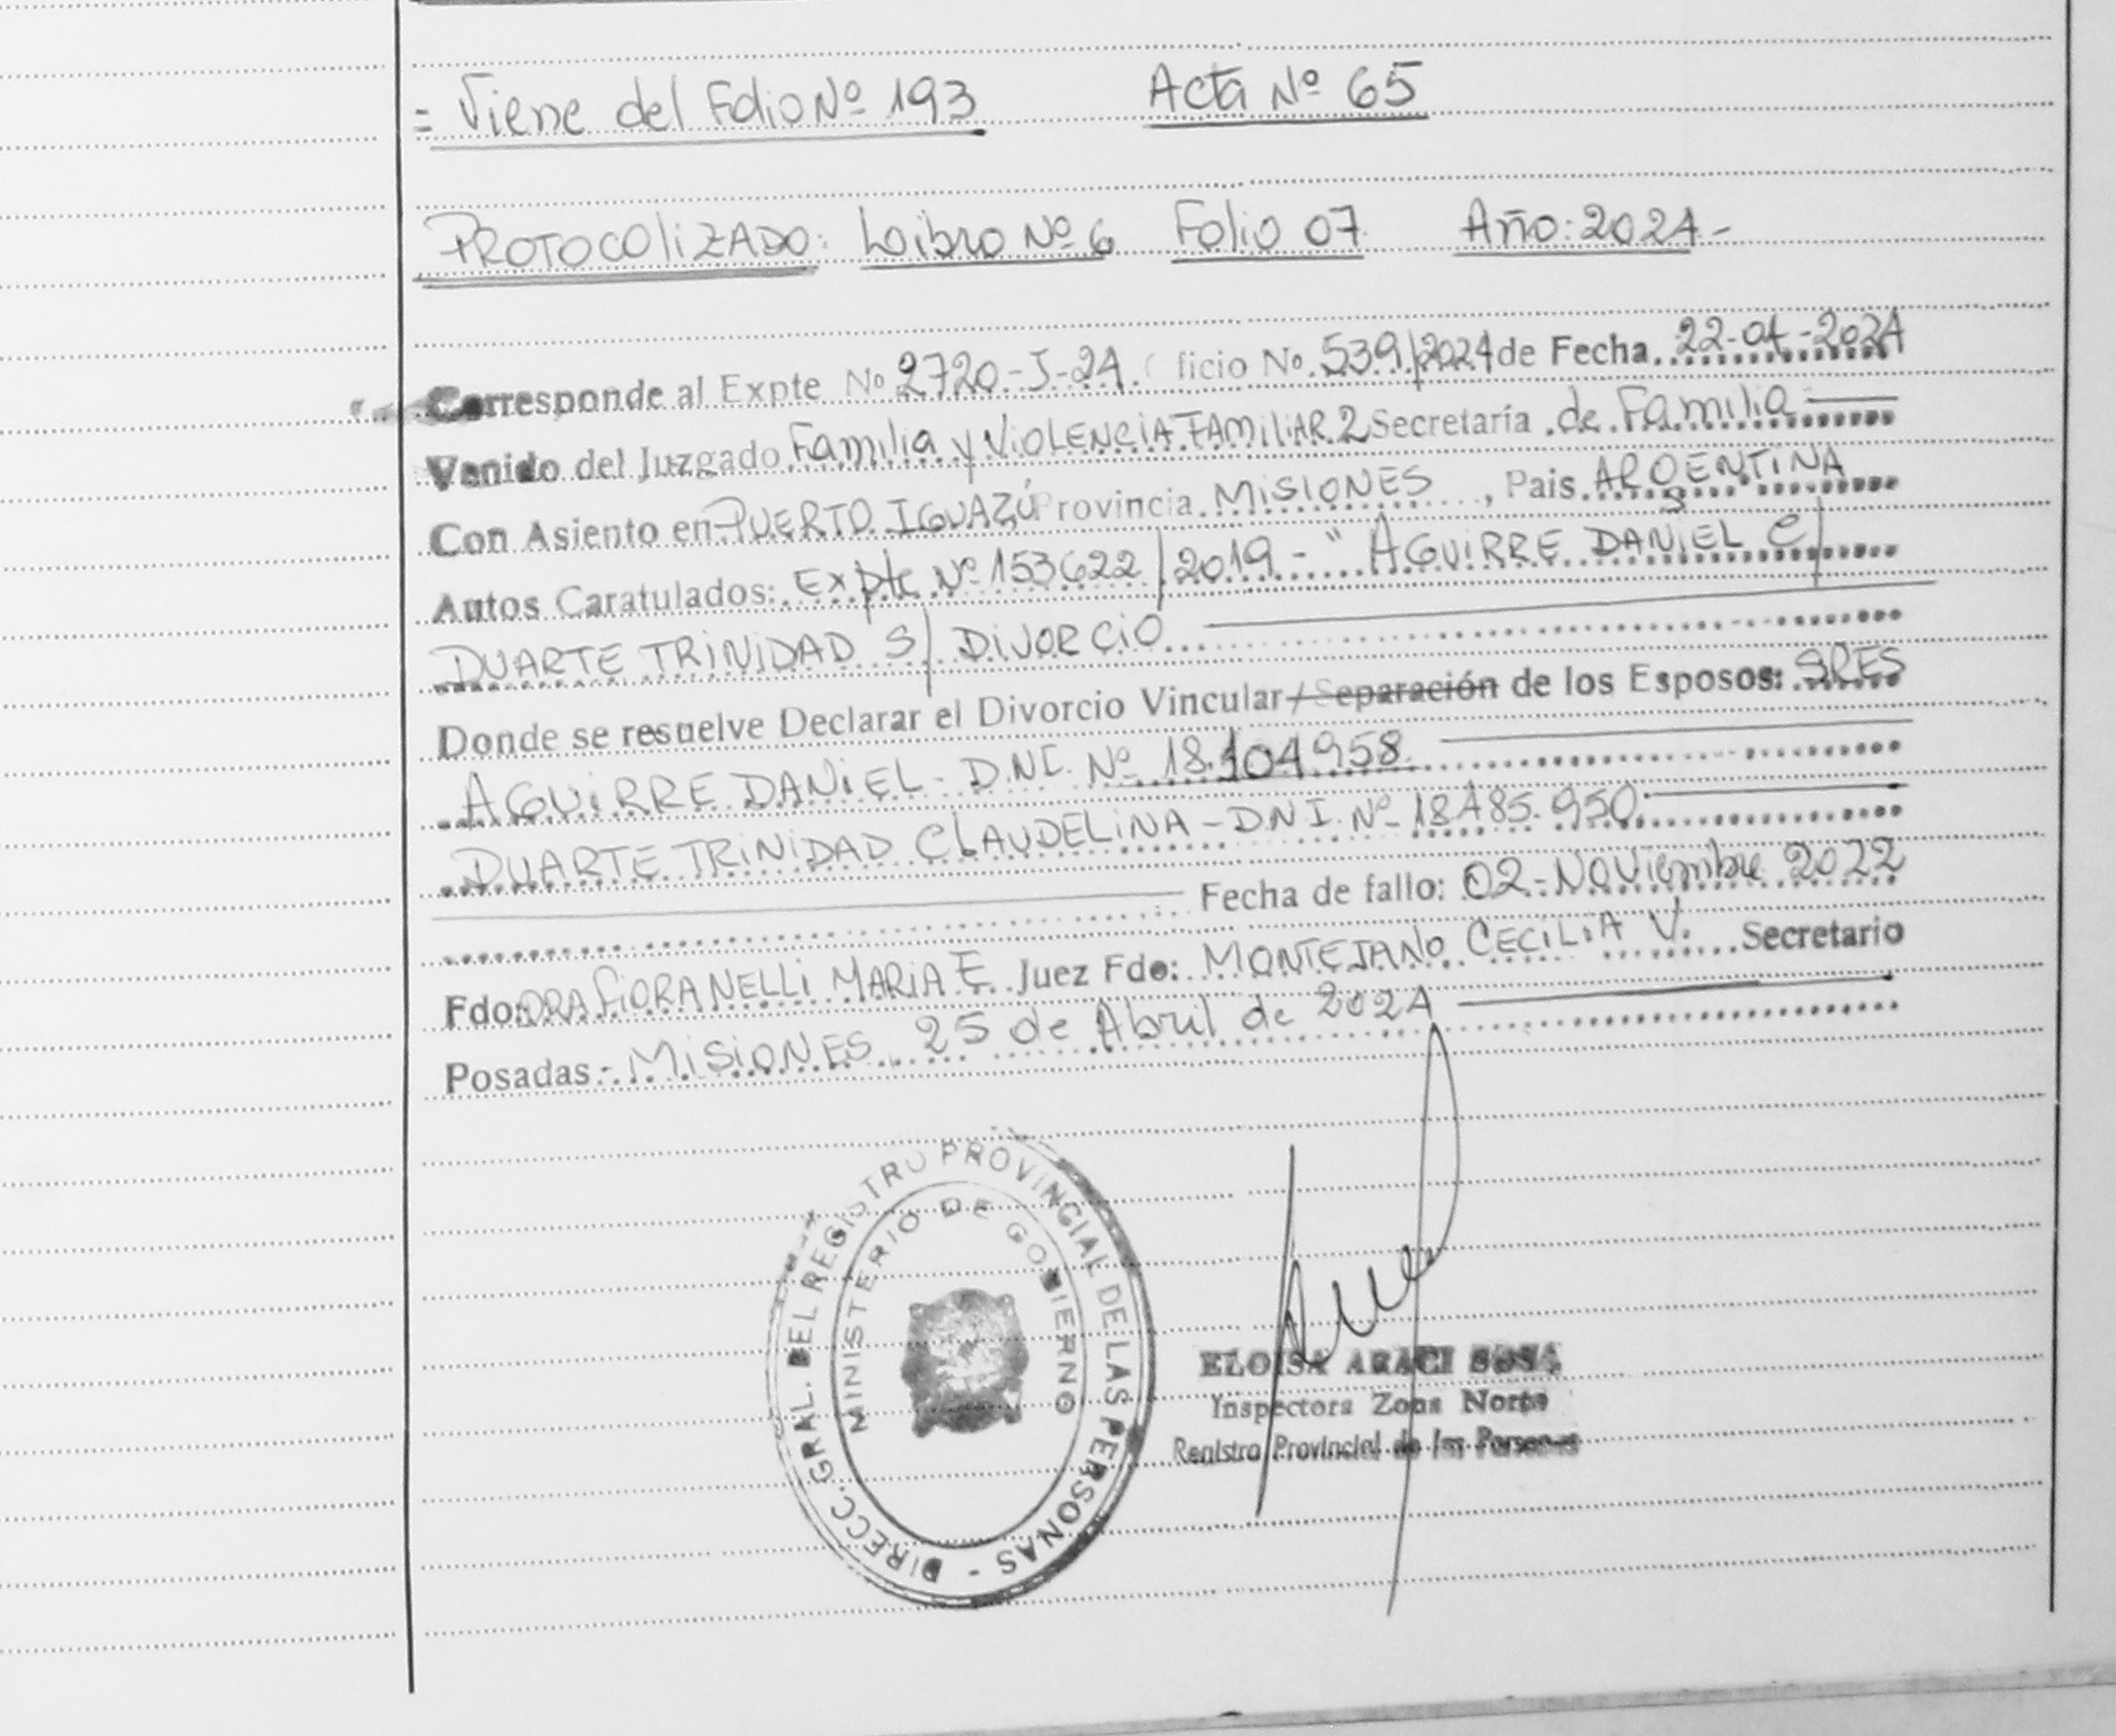 = Viene del Folio Nº 193 Acta Nº 65
PROTOCOLIZADO: Libro Nº 6 Folio 07 Año: 2024-
Corresponde al Expte Nº 2720-J-24. ficio No. 539/2024 de Fecha. 22-04-2024
Venido del Juzgado Familia y VIOLENCIA FAMILIAR 2 Secretaría de Familia
Con Asiento en PUERTO IGUAZÚ Provincia. MISIONES, Pais. ARGENTINA
Autos Caratulados: Expte Nº 153622/2019 - "AGUIRRE DANIEL C/
DUARTE TRINIDAD S/ DIVORCIO
Donde se resuelve Declarar el Divorcio Vincular / Separación de los Esposos: SRES
AGUIRRE DANIEL - D.N.I. Nº 18.104958.
DUARTE TRINIDAD CLAUDELINA - D.N.I. Nº 18485.950.
Fecha de fallo: 02-Noviembre 2022
Fdo: DRA FIORANELLI MARIA E. Juez Fdo: MONTEJANO CECILIA V. Secretario
Posadas - MISIONES 25 de Abril de 2024
DIRECC. GRAL. DEL REGISTRO PROVINCIAL DE LAS PERSONAS -
MINISTERIO DE GOBIERNO
ELOISA ARACI SOSA
Inspectora Zona Norte
Registro Provincial de las Personas